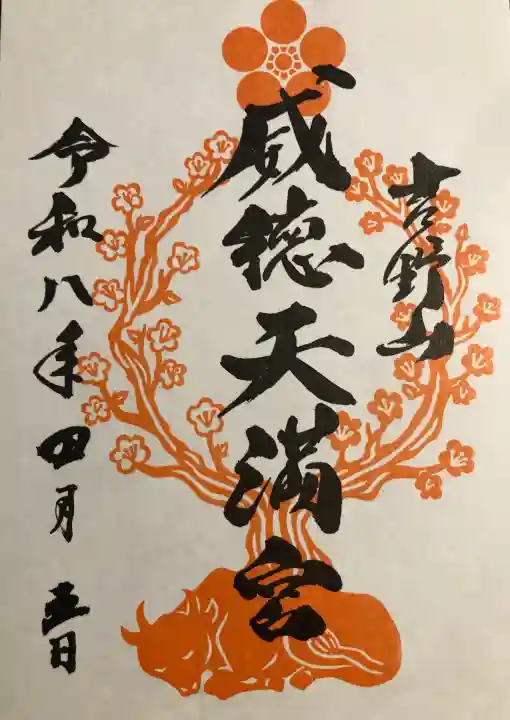 吉野山
威徳天満宮
令和八年四月五日